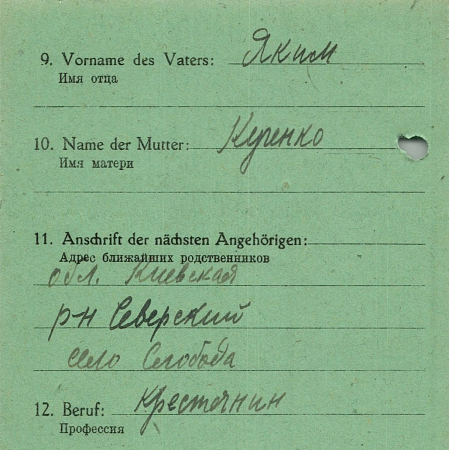 9. Vorname des Vaters: Яким
Имя отца
10. Name der Mutter: Куценко
Имя матери
11. Anschrift der nächsten Angehörigen:
Адрес ближайших родственников
обл. Киевская
р-н Северский
село Слобода
12. Beruf: Крестянин
Профессия